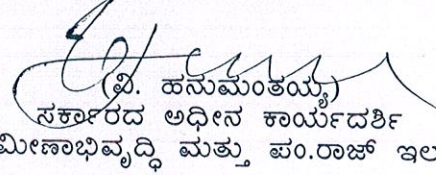 (ವಿ. ಹನುಮಂತಯ್ಯ)
ಸರ್ಕಾರದ ಅಧೀನ ಕಾರ್ಯದರ್ಶಿ
ಮೀಣಾಭಿವೃದ್ಧಿ ಮತ್ತು ಪಂ.ರಾಜ್ ಇಲ